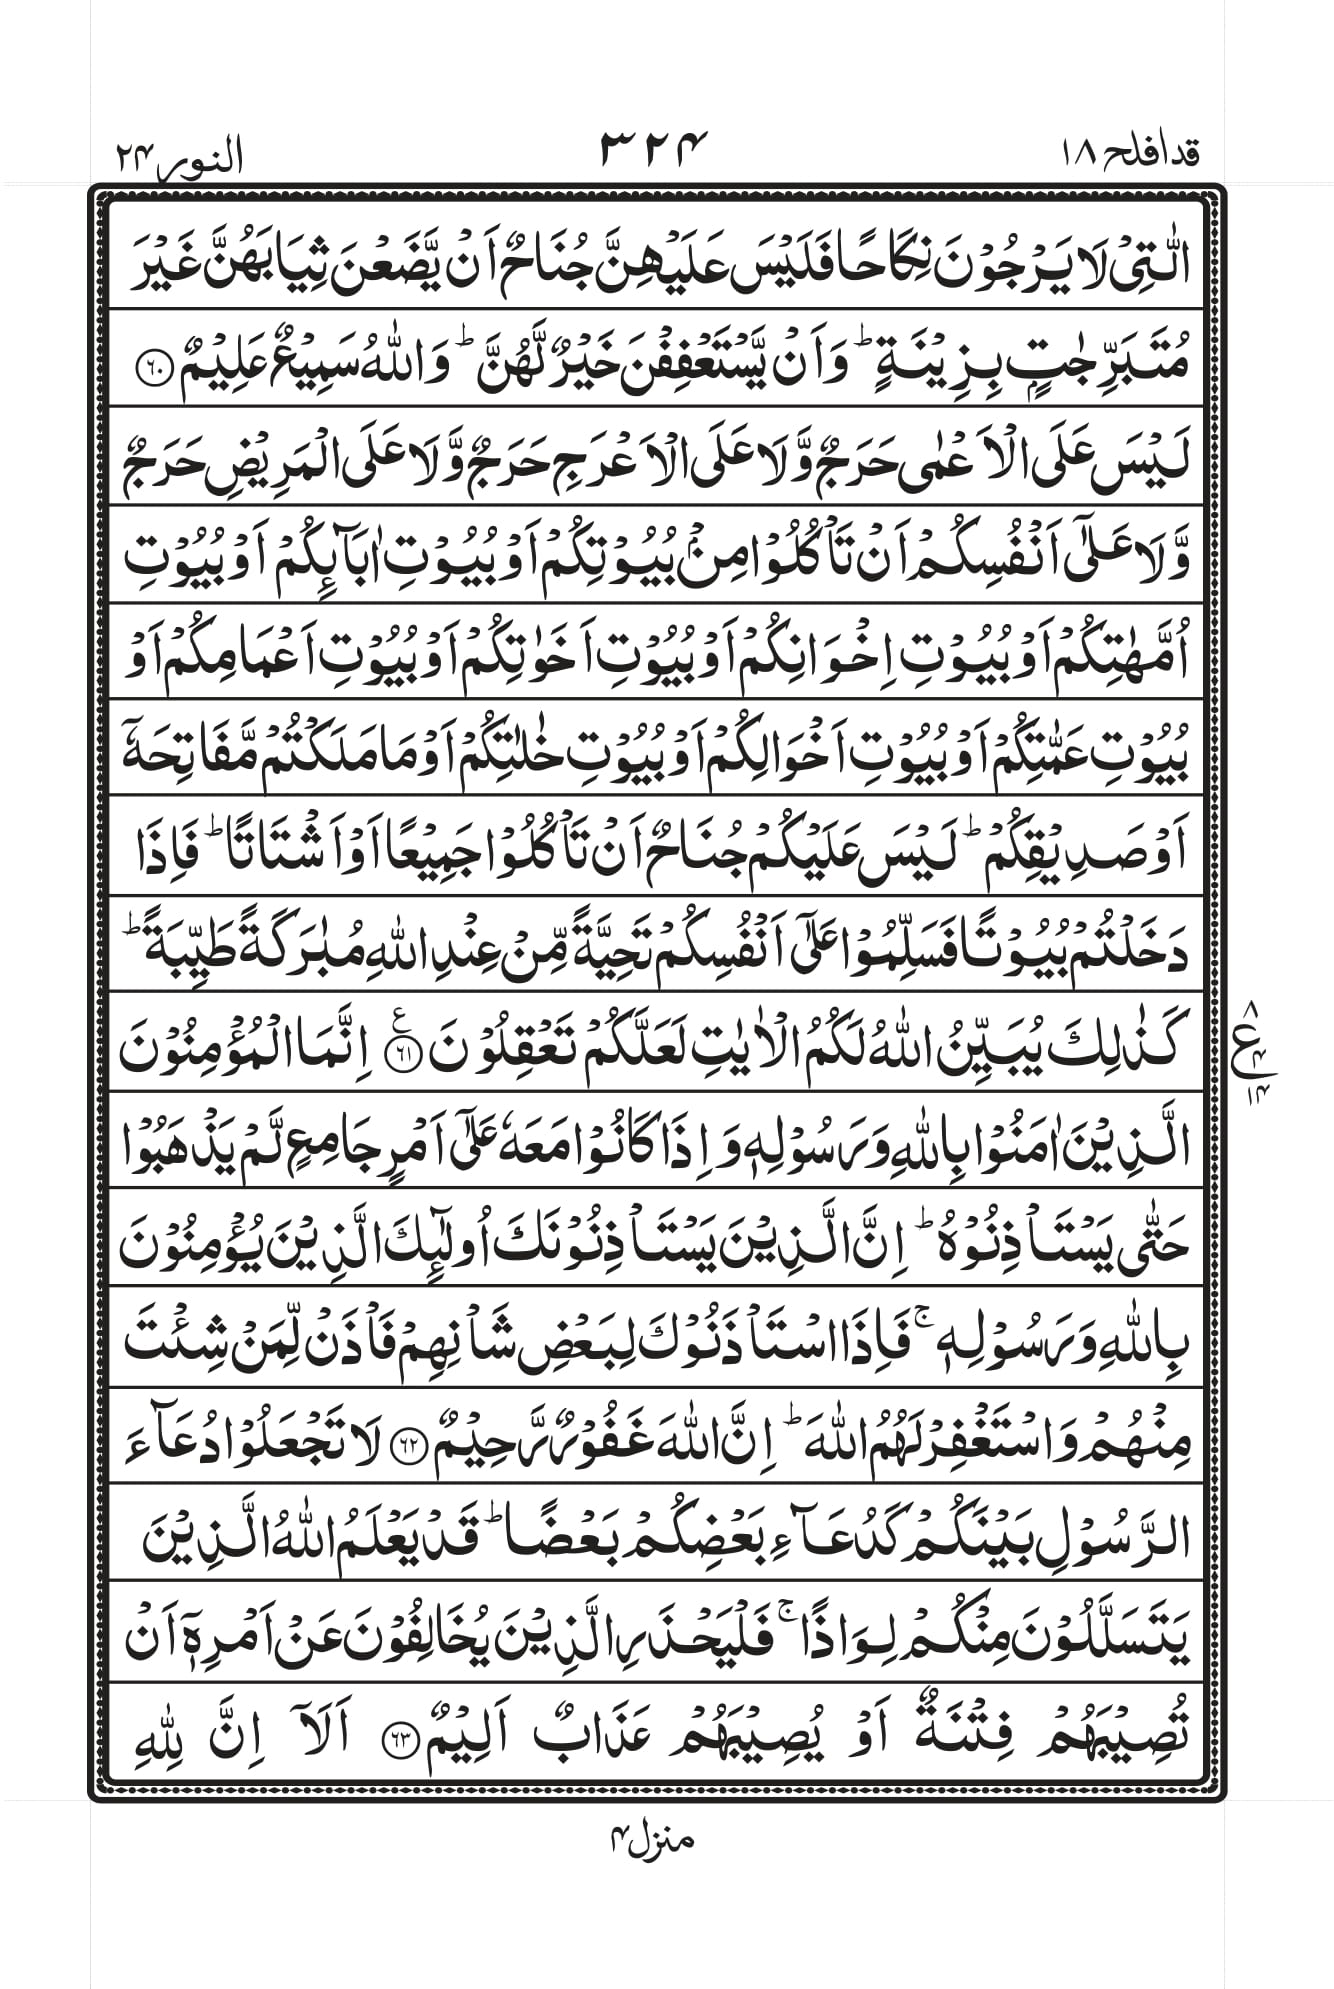 قد افلح ۱۸
۳۲۴
النور ۲۴
الّٰتِىۡ لَا يَرۡجُوۡنَ نِكَاحًا فَلَيۡسَ عَلَيۡهِنَّ جُنَاحٌ اَنۡ يَّضَعۡنَ ثِيَابَهُنَّ غَيۡرَ
مُتَبَرِّجٰتٍۢ بِزِيۡنَةٍ ؕ وَاَنۡ يَّسۡتَعۡفِفۡنَ خَيۡرٌ لَّهُنَّ ؕ وَاللّٰهُ سَمِيۡعٌ عَلِيۡمٌ ﴿۶۰﴾
لَيۡسَ عَلَى الۡاَعۡمٰى حَرَجٌ وَّلَا عَلَى الۡاَعۡرَجِ حَرَجٌ وَّلَا عَلَى الۡمَرِيۡضِ حَرَجٌ
وَّلَا عَلٰٓى اَنۡفُسِكُمۡ اَنۡ تَاۡكُلُوۡا مِنۡۢ بُيُوۡتِكُمۡ اَوۡ بُيُوۡتِ اٰبَآٮِٕكُمۡ اَوۡ بُيُوۡتِ
اُمَّهٰتِكُمۡ اَوۡ بُيُوۡتِ اِخۡوَانِكُمۡ اَوۡ بُيُوۡتِ اَخَوٰتِكُمۡ اَوۡ بُيُوۡتِ اَعۡمَامِكُمۡ اَوۡ
بُيُوۡتِ عَمّٰتِكُمۡ اَوۡ بُيُوۡتِ اَخۡوَالِكُمۡ اَوۡ بُيُوۡتِ خٰلٰتِكُمۡ اَوۡ مَا مَلَكۡتُمۡ مَّفَاتِحَهٗۤ
اَوۡ صَدِيۡقِكُمۡ ؕ لَيۡسَ عَلَيۡكُمۡ جُنَاحٌ اَنۡ تَاۡكُلُوۡا جَمِيۡعًا اَوۡ اَشۡتَاتًا ؕ فَاِذَا
دَخَلۡتُمۡ بُيُوۡتًا فَسَلِّمُوۡا عَلٰٓى اَنۡفُسِكُمۡ تَحِيَّةً مِّنۡ عِنۡدِ اللّٰهِ مُبٰرَكَةً طَيِّبَةً ؕ
كَذٰلِكَ يُبَيِّنُ اللّٰهُ لَكُمُ الۡاٰيٰتِ لَعَلَّكُمۡ تَعۡقِلُوۡنَ ﴿۶۱﴾ ع اِنَّمَا الۡمُؤۡمِنُوۡنَ
۸ ع ۴ ۱۴
الَّذِيۡنَ اٰمَنُوۡا بِاللّٰهِ وَرَسُوۡلِهٖ وَاِذَا كَانُوۡا مَعَهٗ عَلٰٓى اَمۡرٍ جَامِعٍ لَّمۡ يَذۡهَبُوۡا
حَتّٰى يَسۡتَاۡذِنُوۡهُ ؕ اِنَّ الَّذِيۡنَ يَسۡتَاۡذِنُوۡنَكَ اُولٰٓٮِٕكَ الَّذِيۡنَ يُؤۡمِنُوۡنَ
بِاللّٰهِ وَرَسُوۡلِهٖ ۚ فَاِذَا اسۡتَاۡذَنُوۡكَ لِبَعۡضِ شَاۡنِهِمۡ فَاۡذَنۡ لِّمَنۡ شِئۡتَ
مِنۡهُمۡ وَاسۡتَغۡفِرۡ لَهُمُ اللّٰهَ ؕ اِنَّ اللّٰهَ غَفُوۡرٌ رَّحِيۡمٌ ﴿۶۲﴾ لَا تَجۡعَلُوۡا دُعَآءَ
الرَّسُوۡلِ بَيۡنَكُمۡ كَدُعَآءِ بَعۡضِكُمۡ بَعۡضًا ؕ قَدۡ يَعۡلَمُ اللّٰهُ الَّذِيۡنَ
يَتَسَلَّلُوۡنَ مِنۡكُمۡ لِوَاذًا ۚ فَلۡيَحۡذَرِ الَّذِيۡنَ يُخَالِفُوۡنَ عَنۡ اَمۡرِهٖۤ اَنۡ
تُصِيۡبَهُمۡ فِتۡنَةٌ اَوۡ يُصِيۡبَهُمۡ عَذَابٌ اَلِيۡمٌ ﴿۶۳﴾ اَلَاۤ اِنَّ لِلّٰهِ
منزل ۴